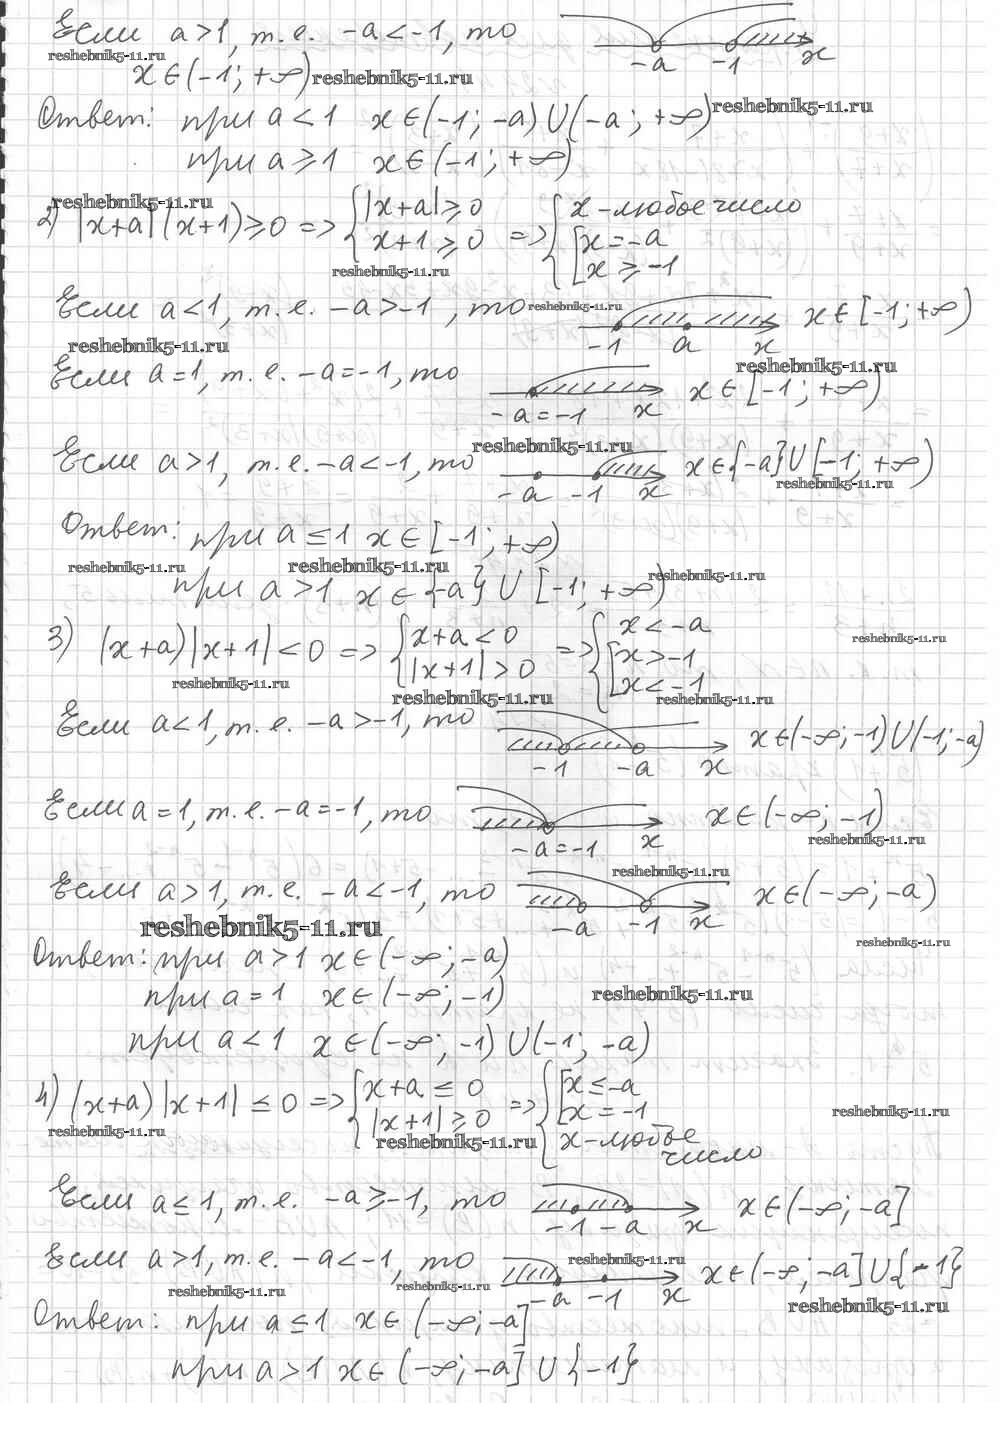 Если a>1, т.е. -a<-1, то
-a -1 x
reshebnik5-11.ru
x∈(-1; +∞) reshebnik5-11.ru
Ответ: при a<1 x∈(-1; -a)∪(-a; +∞) reshebnik5-11.ru
при a⩾1 x∈(-1; +∞)
reshebnik5-11.ru
2) |x+a|(x+1)⩾0 => { |x+a|⩾0 => { x-любое число
x+1⩾0 [ x=-a
reshebnik5-11.ru x⩾-1
Если a<1, т.е. -a>-1, то reshebnik5-11.ru x∈[-1; +∞)
-1 a x
reshebnik5-11.ru reshebnik5-11.ru
Если a=1, т.е. -a=-1, то x∈[-1; +∞)
-a=-1 x
reshebnik5-11.ru
Если a>1, т.е. -a<-1, то x∈{-a}∪[-1; +∞)
-a -1 x reshebnik5-11.ru
Ответ: при a≤1 x∈[-1; +∞)
reshebnik5-11.ru reshebnik5-11.ru reshebnik5-11.ru
при a>1 x∈{-a}∪[-1; +∞)
3) (x+a)|x+1|<0 => { x+a<0 => { x<-a
|x+1|>0 [ x>-1
x<-1
reshebnik5-11.ru
reshebnik5-11.ru reshebnik5-11.ru reshebnik5-11.ru
Если a<1, т.е. -a>-1, то x∈(-∞; -1)∪(-1; -a)
-1 -a x
Если a=1, т.е. -a=-1, то x∈(-∞; -1)
-a=-1 x reshebnik5-11.ru
reshebnik5-11.ru
Если a>1, т.е. -a<-1, то x∈(-∞; -a)
-a -1 x
reshebnik5-11.ru reshebnik5-11.ru
Ответ: при a>1 x∈(-∞; -a)
при a=1 x∈(-∞; -1) reshebnik5-11.ru
при a<1 x∈(-∞; -1)∪(-1; -a)
4) (x+a)|x+1|≤0 => { x+a≤0 => { [ x≤-a
|x+1|⩾0 x=-1
reshebnik5-11.ru reshebnik5-11.ru reshebnik5-11.ru
x-любое
число
Если a≤1, т.е. -a⩾-1, то x∈(-∞; -a]
-1 -a x
Если a>1, т.е. -a<-1, то reshebnik5-11.ru x∈(-∞; -a]∪{-1}
-a -1 x
reshebnik5-11.ru reshebnik5-11.ru reshebnik5-11.ru
Ответ: при a≤1 x∈(-∞; -a]
при a>1 x∈(-∞; -a]∪{-1}